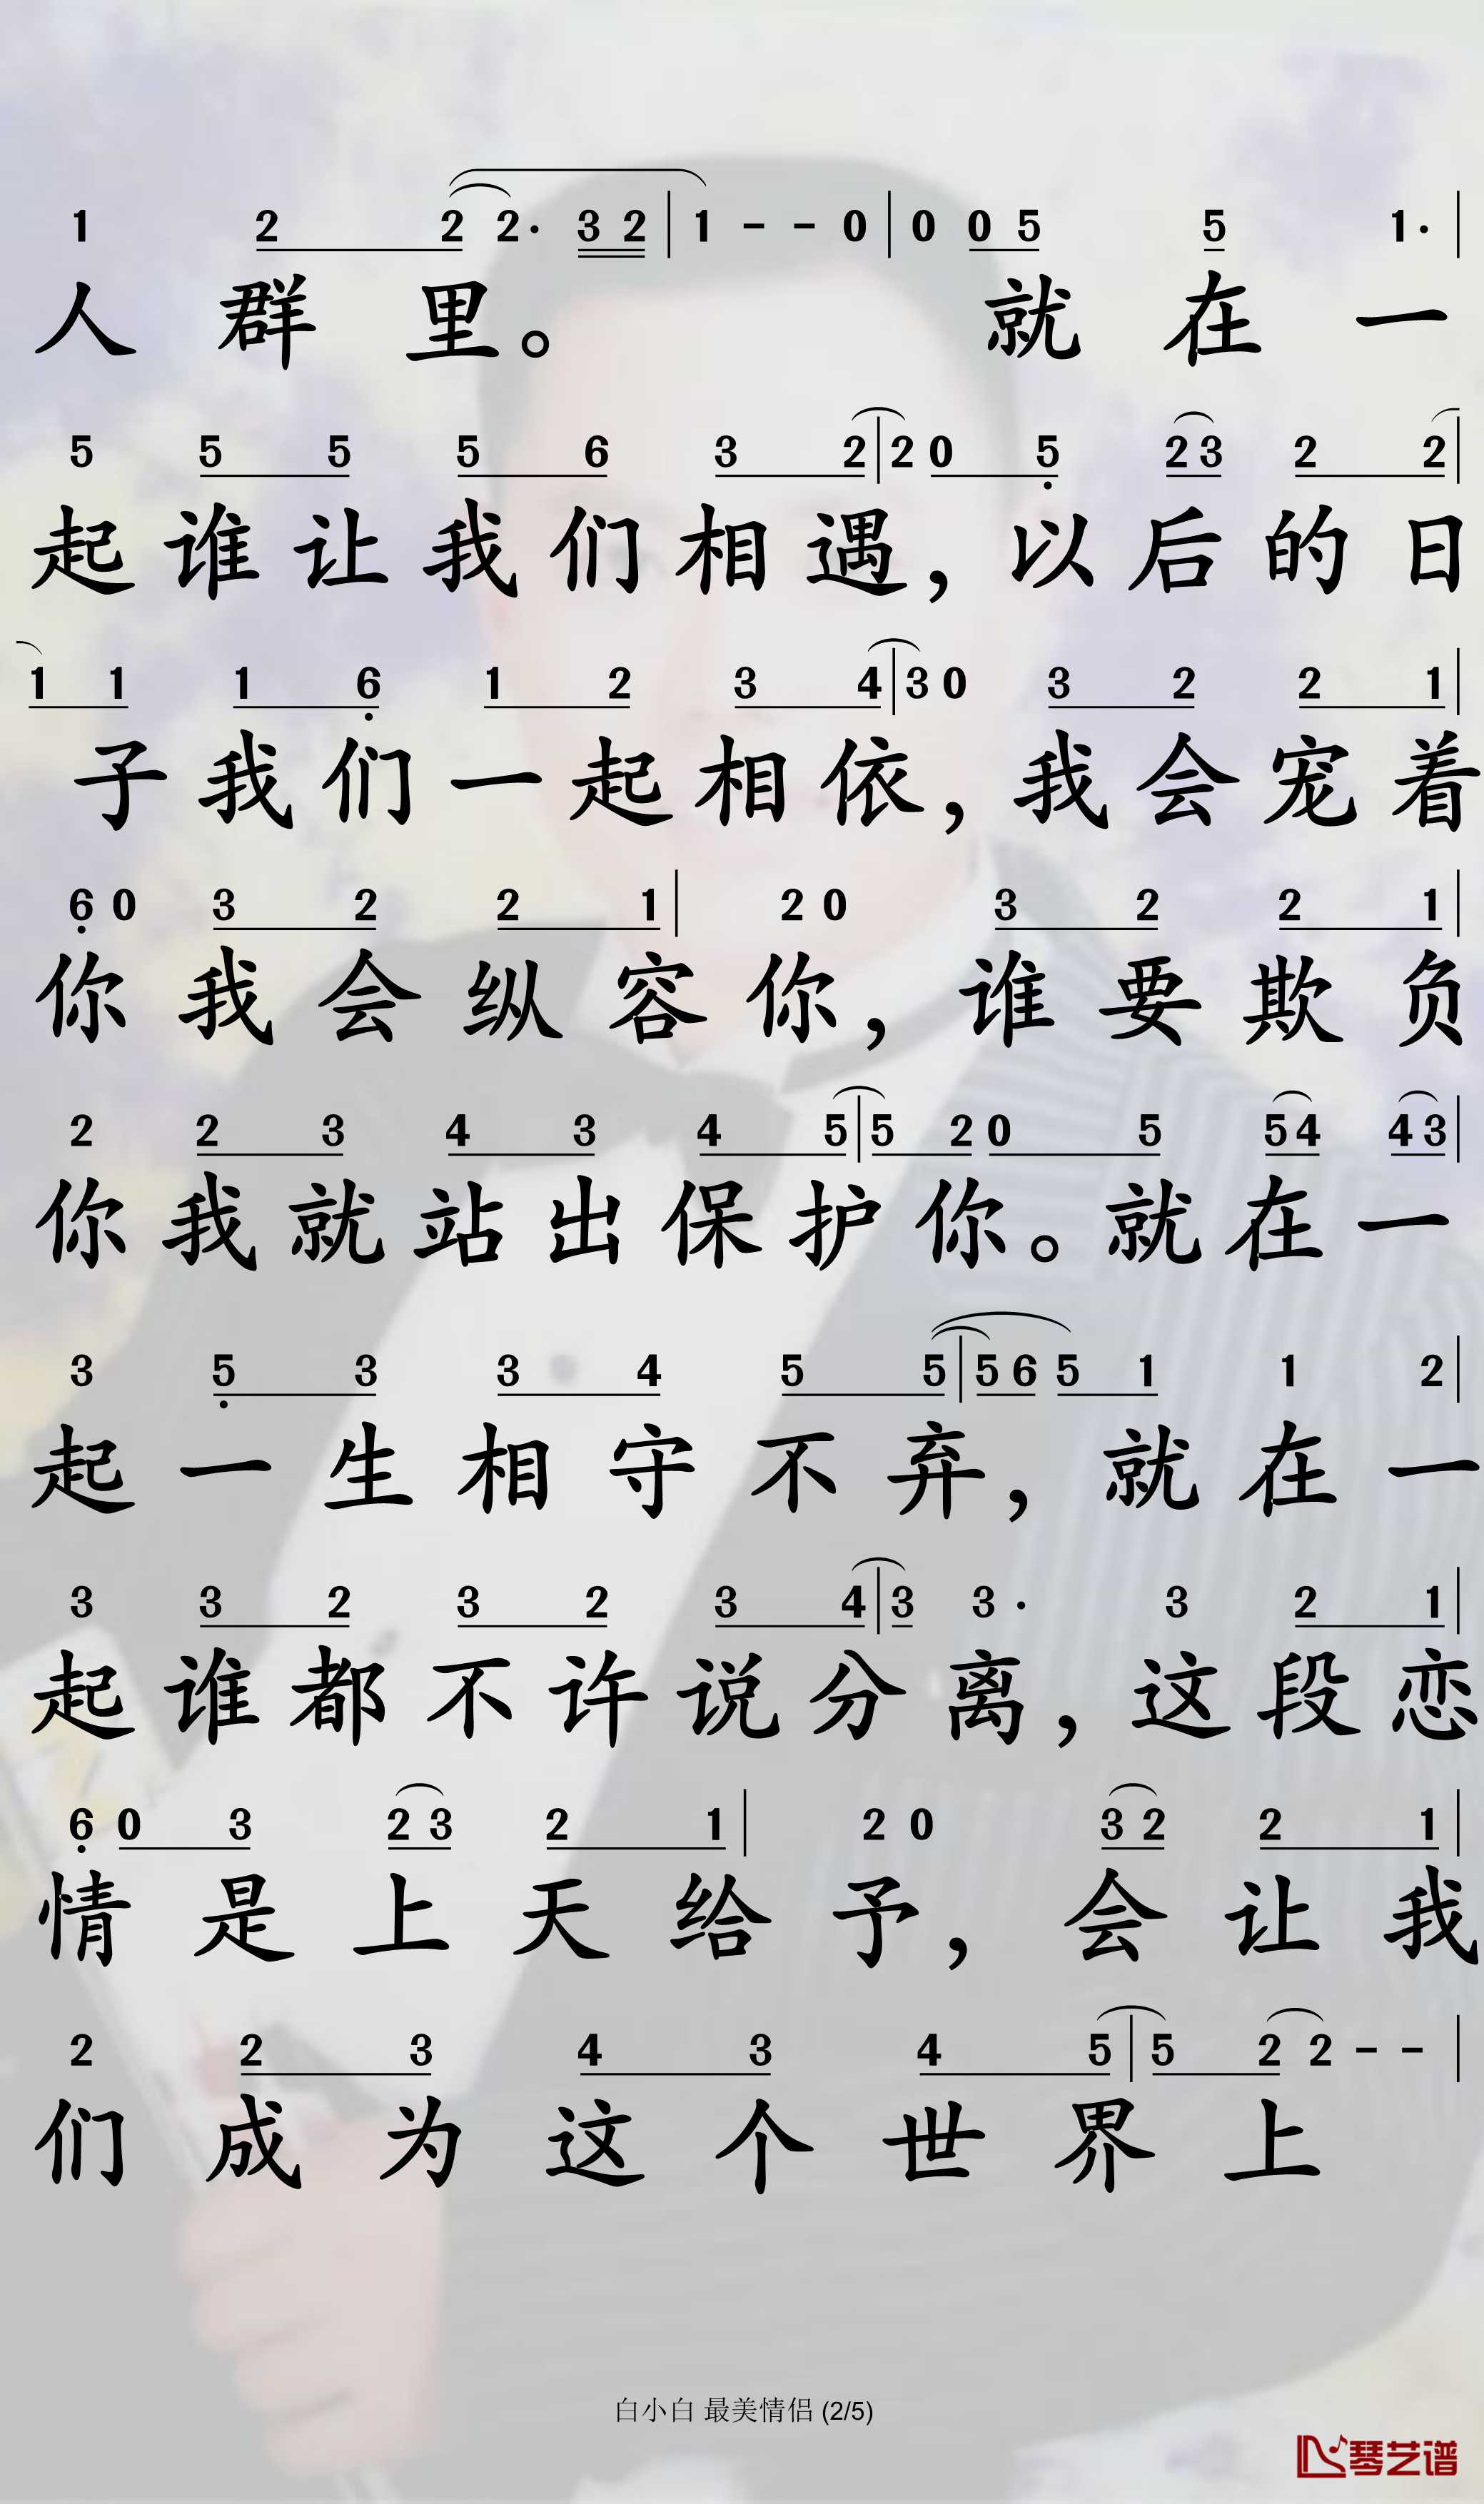 1 2 2 2· 3 2 | 1 - - 0 | 0 0 5 5 1· |
人群里。 就在一
5 5 5 5 6 3 2 | 2 0 5 2 3 2 2 |
起谁让我们相遇，以后的日
1 1 1 6 1 2 3 4 | 3 0 3 2 2 1 |
子我们一起相依，我会宠着
6 0 3 2 2 1 | 2 0 3 2 2 1 |
你我会纵容你，谁要欺负
2 2 3 4 3 4 5 | 5 2 0 5 5 4 4 3 |
你我就站出保护你。就在一
3 5 3 3 4 5 5 | 5 6 5 1 1 2 |
起一生相守不弃，就在一
3 3 2 3 2 3 4 | 3 3· 3 2 1 |
起谁都不许说分离，这段恋
6 0 3 2 3 2 1 | 2 0 3 2 2 1 |
情是上天给予，会让我
2 2 3 4 3 4 5 | 5 2 2 - - |
们成为这个世界上
白小白 最美情侣 (2/5)
琴艺谱